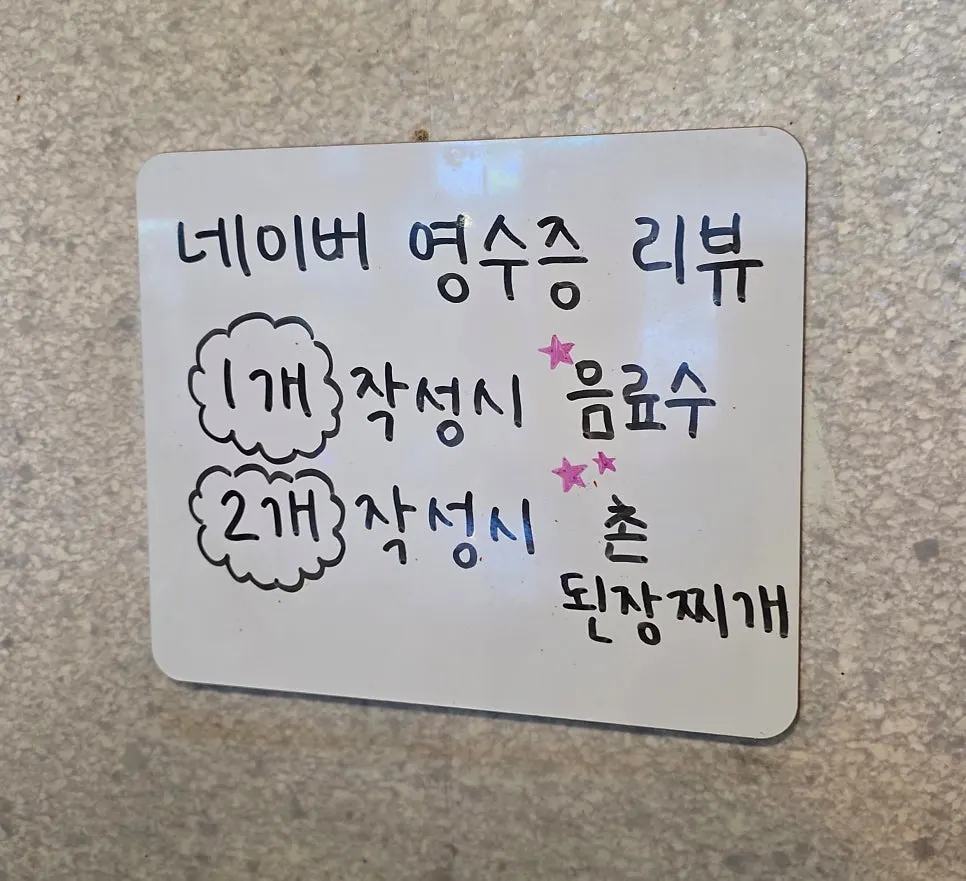 네이버 영수증 리뷰
1개 작성시 음료수
2개 작성시 촌
된장찌개